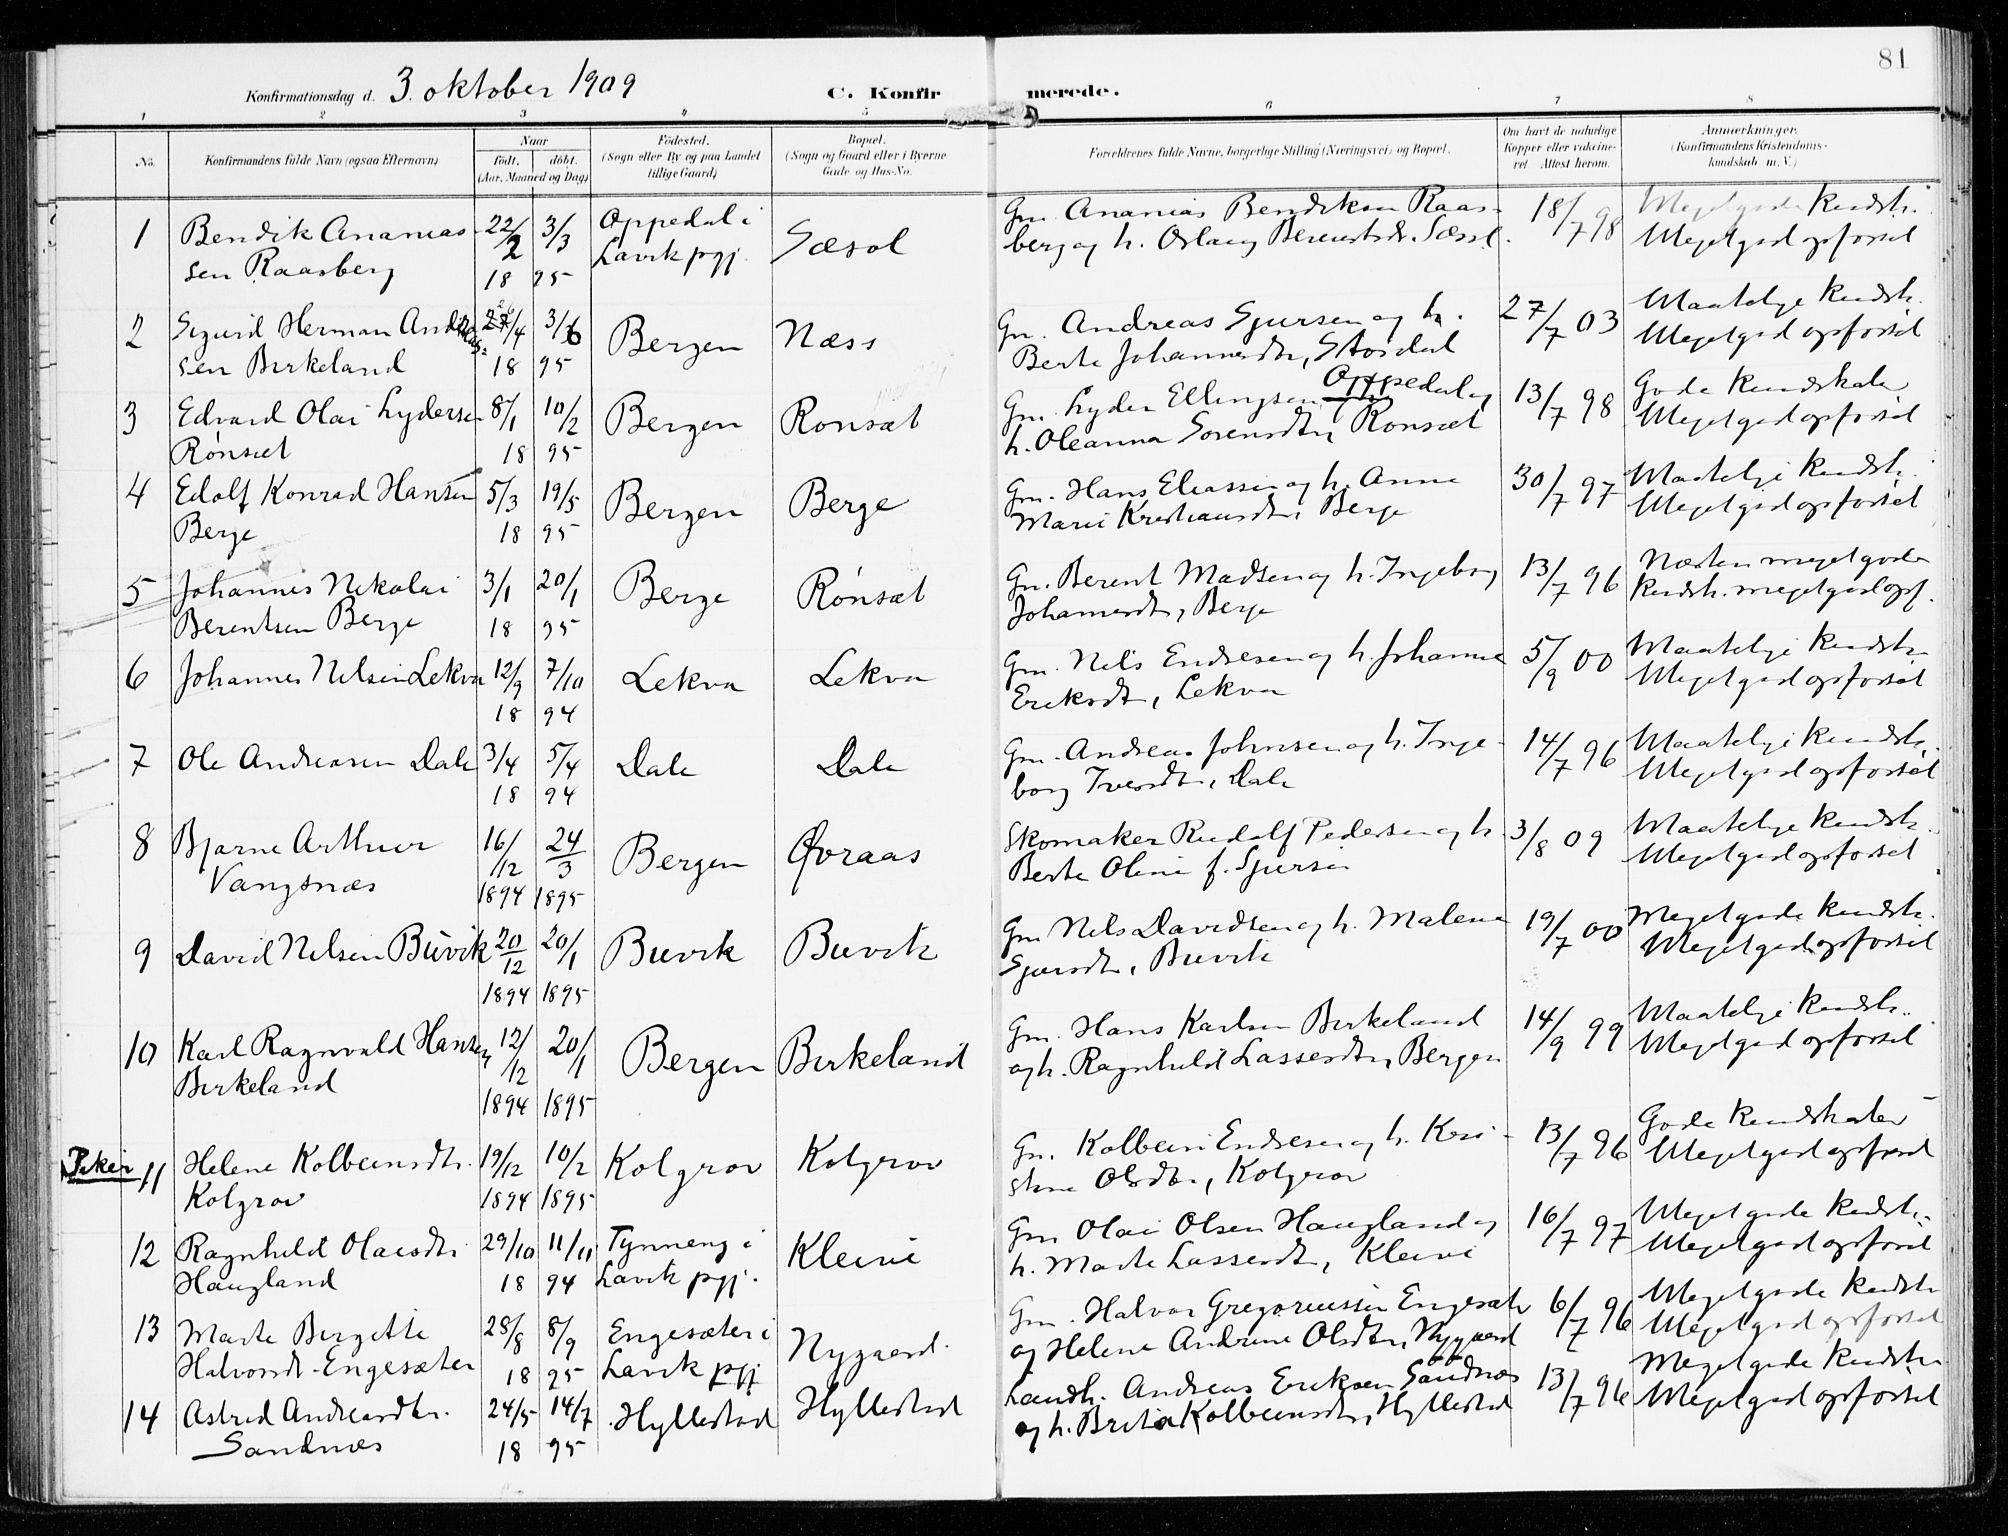 81
Konfirmationsdag d. 3. oktober 1909
C. Konfirmerede.
1 2 3 4 5 6 7 8
No. Konfirmandens fulde Navn (ogsaa Efternavn) Naar født. døbt. (Aar, Maaned og Dag) Fødested. (Sogn eller By og paa Landet tillige Gaard) Bopæl. (Sogn og Gaard eller i Byerne Gade og Hus-No. Forældrenes fulde Navne, borgerlige Stilling (Næringsvei) og Bopæl. Om havt de naturlige Kopper eller vaccineret Attest herom. Anmerkninger. (Konfirmandens Kristendomskundskab m. V.)
1 Bendik Ananias- 22/2 3/3 Oppedal i Sæsol Gm. Ananias Bendiksen Raas- 18/7 98 Megetgode kundsk.
sen Raasberg 18 95 Lavik pgj. berg og h. Oslaug Berentsdr. Sæsol. Megetgod opførsel
2 Sigurd Herman Andreas- 27/4 26 3/6 Bergen Næss Gm. Andreas Sjursen og h. 27/7 03 Maatelige kundsk.
sen Birkeland 18 95 Berte Johannesdtr, Stordal Megetgod opførsel
3 Edvard Olai Lydersen 8/1 10/2 Bergen Ronsæt Gm. Lyder Ellingsen Oppedal og 13/7 98 Gode kundskaber
Rønsæt 18 95 h. Oleanna Sorensdtr, Ronsæt Megetgod opførsel
4 Edolf Konrad Hansen 5/3 19/5 Bergen Berge Gm. Hans Eliassen og h. Anne 30/7 97 Maatelige kundsk.
Berge 18 95 Marie Kristiansdtr, Berge Megetgod opførsel
5 Johannes Nikolai 3/1 20/1 Berge Rønsæt Gm. Berent Madsen og h. Ingeborg 13/7 96 Næsten megetgode
Berentsen Berge 18 95 Johannesdtr, Berge kundsk. megetgod opf.
6 Johannes Nilsen Lekva 12/9 7/10 Lekva Lekva Gm. Nils Endresen og h. Johanne 5/9 00 Maatelige kundsk.
18 94 Eriksdtr, Lekva Megetgod opførsel
7 Ole Andreasen Dale 3/4 5/4 Dale Dale Gm. Andreas Johnsen og h. Inge- 14/7 96 Maatelige kundsk.
18 94 borg Iversdtr, Dale Megetgod opførsel
8 Bjarne Arthur 16/12 24/3 Bergen Øvraas Skomaker Rudolf Pedersen og h. 3/8 09 Maatelige kundsk.
Vangsnæs 1894 1895 Berte Oline f. Sjursen Megetgod opførsel
9 David Nilsen Buvik 20/12 20/1 Buvik Buvik Gm Nils Davidsen og h. Malene 19/7 00 Megetgode kundsk.
1894 1895 Sjursdtr, Buvik Megetgod opførsel
10 Karl Ragnvald Hansen 12/12 20/1 Bergen Birkeland Gm. Hans Karlsen Birkeland 14/9 99 Maatelige kundsk.
Birkeland 1894 1895 og h. Ragnhild Lassesdtr, Bergen Megetgod opførsel
Piker
11 Helene Kolbeinsdtr. 19/12 10/2 Kolgrov Kolgrov Gm. Kolbein Endresen og h. Kri- 13/7 96 Gode kundskaber
Kolgrov 1894 1895 stine Olsdtr, Kolgrov Megetgod opførsel
12 Ragnhild Olaisdtr. 29/10 11/11 Tynneng i Kleivi Gm Olai Olsen Haugland og 16/7 97 Megetgode kundsk.
Haugland 18 94 Lavik pgj. h. Marte Lassesdtr, Kleivi Megetgod opførsel
13 Marte Bergitte 28/8 8/9 Engesæter i Nygaard. Gm. Halvor Gregoriussen Engesæter 6/7 96 Megetgode kundsk
Halvorsdt. Engesæter 18 95 Lavik pgj og Helene Andrine Olsdtr, Nygaard Megetgod opførsel
14 Astrid Andreasdtr. 24/5 14/7 Hyllestad Hyllestad Landh. Andreas Eriksen Sandnæs 13/7 96 Megetgode kundsk
Sandnæs 18 95 og h. Brita Kolbeinsdtr, Hyllestad Megetgod opførsel